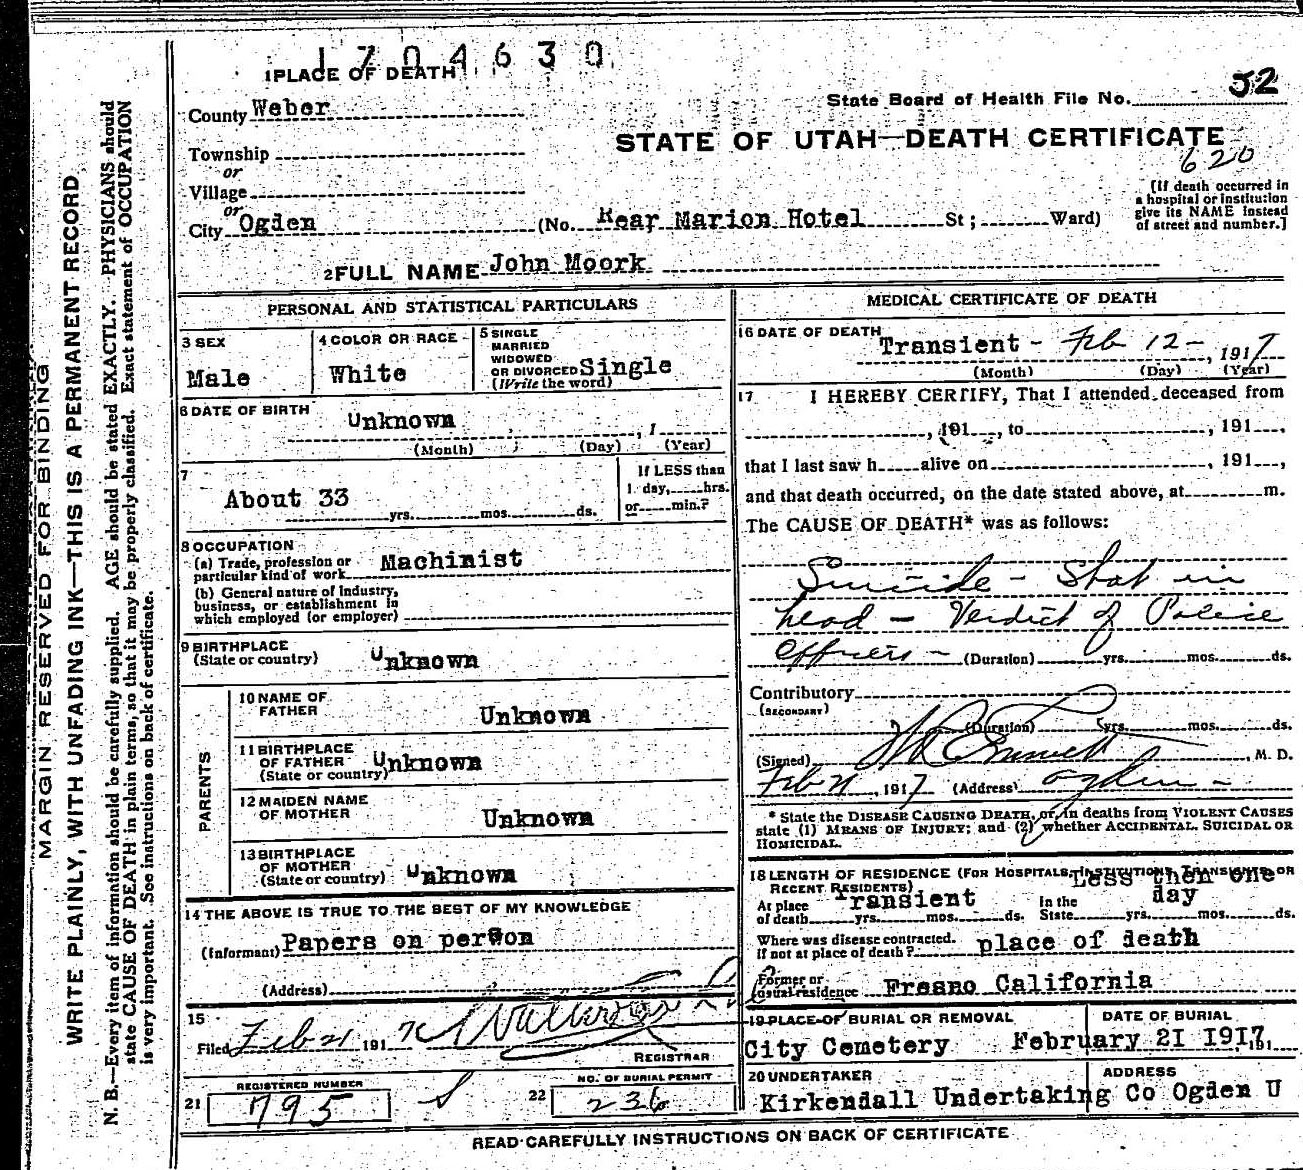 1704630
1 PLACE OF DEATH
State Board of Health File No. 52
County Weber
STATE OF UTAH—DEATH CERTIFICATE
620
Township
or
Village
or
City Ogden (No. Rear Marion Hotel St; Ward)
(If death occurred in
a hospital or institution
give its NAME instead
of street and number.]
2 FULL NAME John Moork
MARGIN RESERVED FOR BINDING
WRITE PLAINLY, WITH UNFADING INK—THIS IS A PERMANENT RECORD
N. B.—Every item of information should be carefully supplied. AGE should be stated EXACTLY. PHYSICIANS should
state CAUSE OF DEATH in plain terms, so that it may be properly classified. Exact statement of OCCUPATION
is very important. See instructions on back of certificate.
PERSONAL AND STATISTICAL PARTICULARS
3 SEX
Male
4 COLOR OR RACE
White
5 SINGLE
MARRIED
WIDOWED
OR DIVORCED Single
(Write the word)
6 DATE OF BIRTH
Unknown , 1
(Month) (Day) (Year)
7
About 33
yrs. mos. ds.
If LESS than
1 day, hrs.
or min.?
8 OCCUPATION
(a) Trade, profession or
particular kind of work Machinist
(b) General nature of Industry,
business, or establishment in
which employed (or employer)
9 BIRTHPLACE
(State or country) Unknown
PARENTS
10 NAME OF
FATHER
Unknown
11 BIRTHPLACE
OF FATHER
(State or country) Unknown
12 MAIDEN NAME
OF MOTHER
Unknown
13 BIRTHPLACE
OF MOTHER
(State or country) Unknown
14 THE ABOVE IS TRUE TO THE BEST OF MY KNOWLEDGE
(Informant) Papers on person
(Address)
15
Filed Feb 21 1917
REGISTRAR
REGISTERED NUMBER
21 795
NO. OF BURIAL PERMIT
22 236
MEDICAL CERTIFICATE OF DEATH
16 DATE OF DEATH
Transient - Feb 12 - , 1917
(Month) (Day) (Year)
17 I HEREBY CERTIFY, That I attended deceased from
, 191 , to , 191 ,
that I last saw h alive on , 191 ,
and that death occurred, on the date stated above, at m.
The CAUSE OF DEATH* was as follows:
Suicide - Shot in
head - Verdict of Police
Officers - (Duration) yrs. mos. ds.
Contributory
(SECONDARY)
(Duration) yrs. mos. ds.
(Signed) , M. D.
Feb 21 , 1917 (Address) Ogden -
* State the DISEASE CAUSING DEATH, or, in deaths from VIOLENT CAUSES
state (1) MEANS OF INJURY; and (2) whether ACCIDENTAL, SUICIDAL OR
HOMICIDAL.
18 LENGTH OF RESIDENCE (FOR HOSPITALS, INSTITUTIONS, TRANSIENTS OR
RECENT RESIDENTS)
At place
of death Transient yrs. mos. ds.
In the
State Less then one
day yrs. mos. ds.
Where was disease contracted.
if not at place of death? place of death
Former or
usual residence Fresno California
19 PLACE OF BURIAL OR REMOVAL
City Cemetery
DATE OF BURIAL
February 21 1917 191
20 UNDERTAKER
ADDRESS
Kirkendall Undertaking Co Ogden U
READ CAREFULLY INSTRUCTIONS ON BACK OF CERTIFICATE